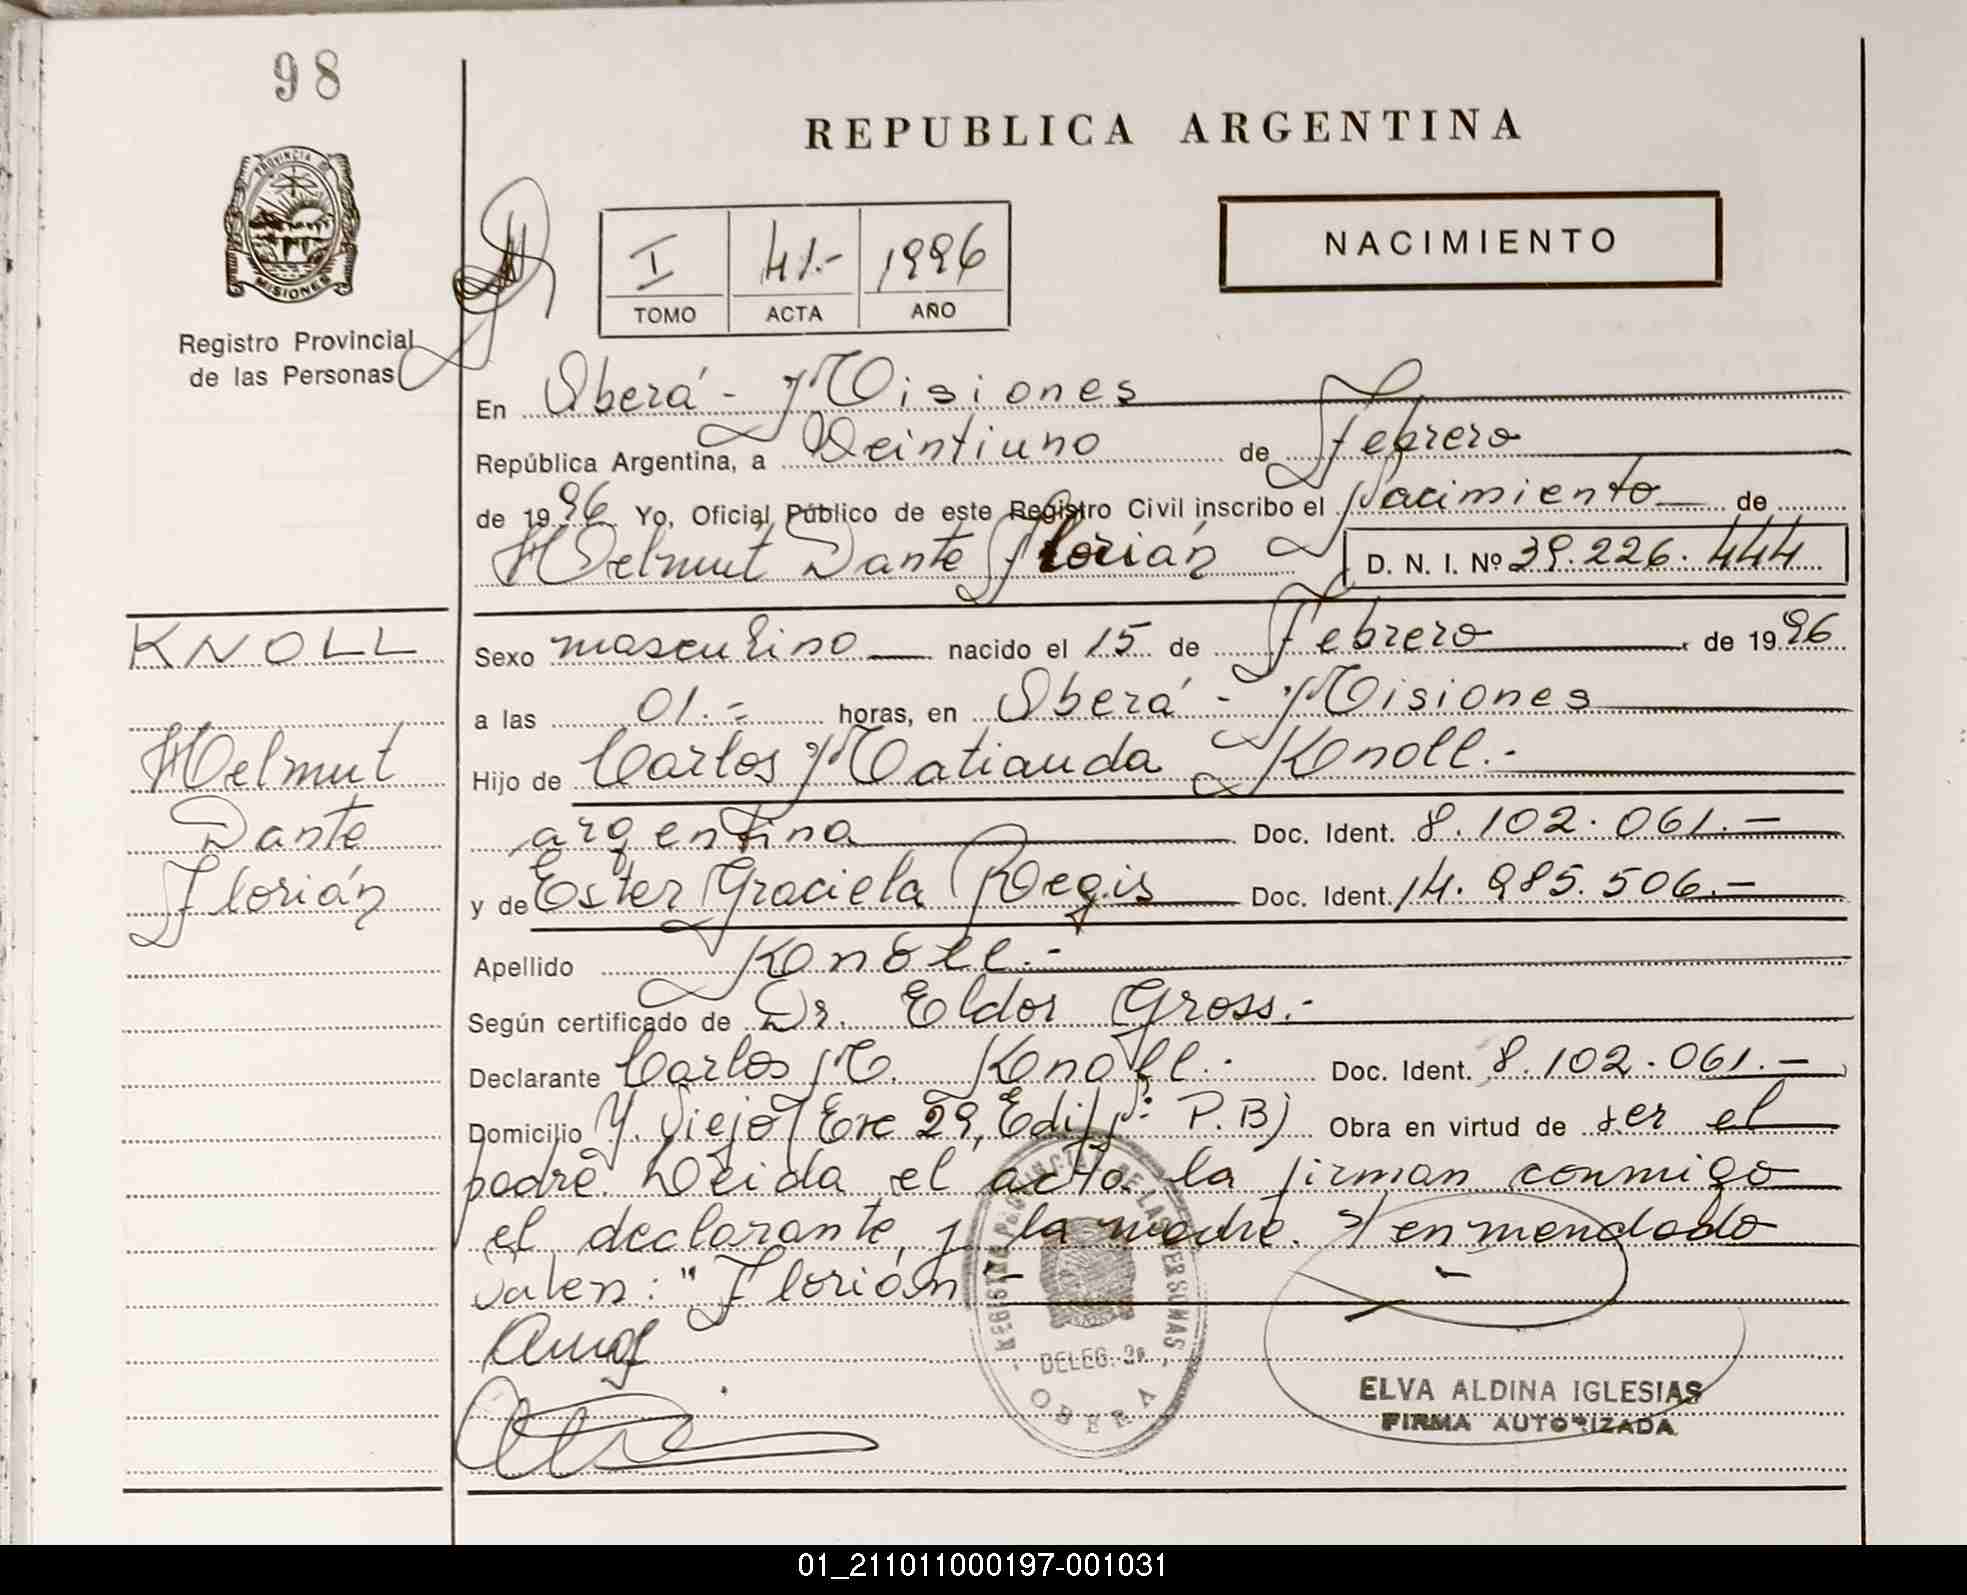 98
REPUBLICA ARGENTINA
PROVINCIA DE
MISIONES
Registro Provincial
de las Personas
I 41.- 1996
TOMO ACTA AÑO
NACIMIENTO
En Oberá - Misiones
República Argentina, a Veintiuno de Febrero
de 1996 Yo, Oficial Público de este Registro Civil inscribo el Nacimiento de
Helmut Dante Florián D. N. I. Nº 39.226.444
KNOLL
Helmut
Dante
Florián
Sexo masculino nacido el 15 de Febrero de 1996
a las 01.- horas, en Oberá - Misiones
Hijo de Carlos Matiauda Knoll.-
argentina Doc. Ident. 8.102.061.-
y de Ester Graciela Regis Doc. Ident. 14.985.506.-
Apellido Knoll.-
Según certificado de Dr. Eldor Gross.-
Declarante Carlos M. Knoll.- Doc. Ident. 8.102.061.-
Domicilio Y. Viejo (Ere 29, Edif P.B) Obra en virtud de ser el
padre. Leida el acta la firman conmigo
el declarante y la madre. S/ enmendado
valen: "Florián"-
REGISTRO PROVINCIAL DE LAS PERSONAS
DELEG. 2ª
OBERA
ELVA ALDINA IGLESIAS
FIRMA AUTORIZADA
01_211011000197-001031